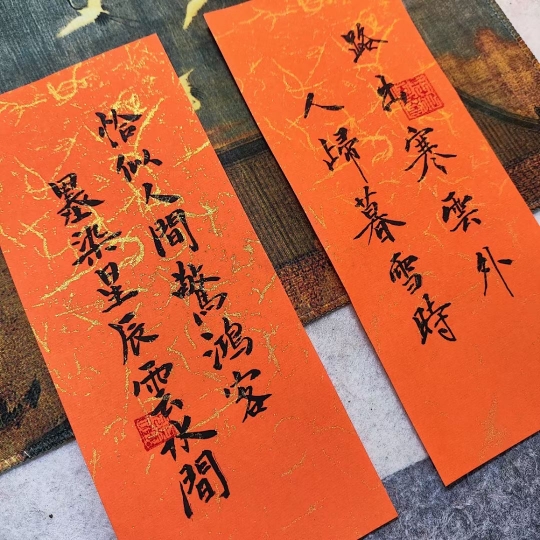 路出寒雲外
人歸暮雪時
恰似人間驚鴻客
墨染星辰雲水間